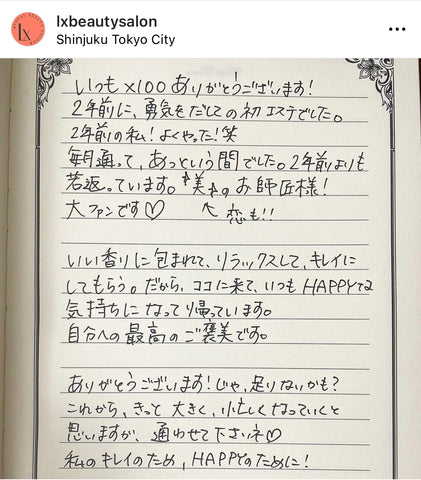 lxbeautysalon
Shinjuku Tokyo City
lx
いつも×100ありがとうございます!
2年前に、勇気をだしての初エステでした。
2年前の私!よくやった!笑
毎月通って、あっという間でした。2年前よりも
若返っています。☆美☆のお師匠様!
大ファンです♡ ↖恋も!!
いい香りに包まれて、リラックスして、キレイに
してもらう。だから、ココに来て、いつもHAPPYな
気持ちになって帰っています。
自分への最高のご褒美です。
ありがとうございます!じゃ、足りないかも?
これから、きっと大きく、忙しくなっていくと
思いますが、通わせて下さいネ♡
私のキレイのため、HAPPYのために!